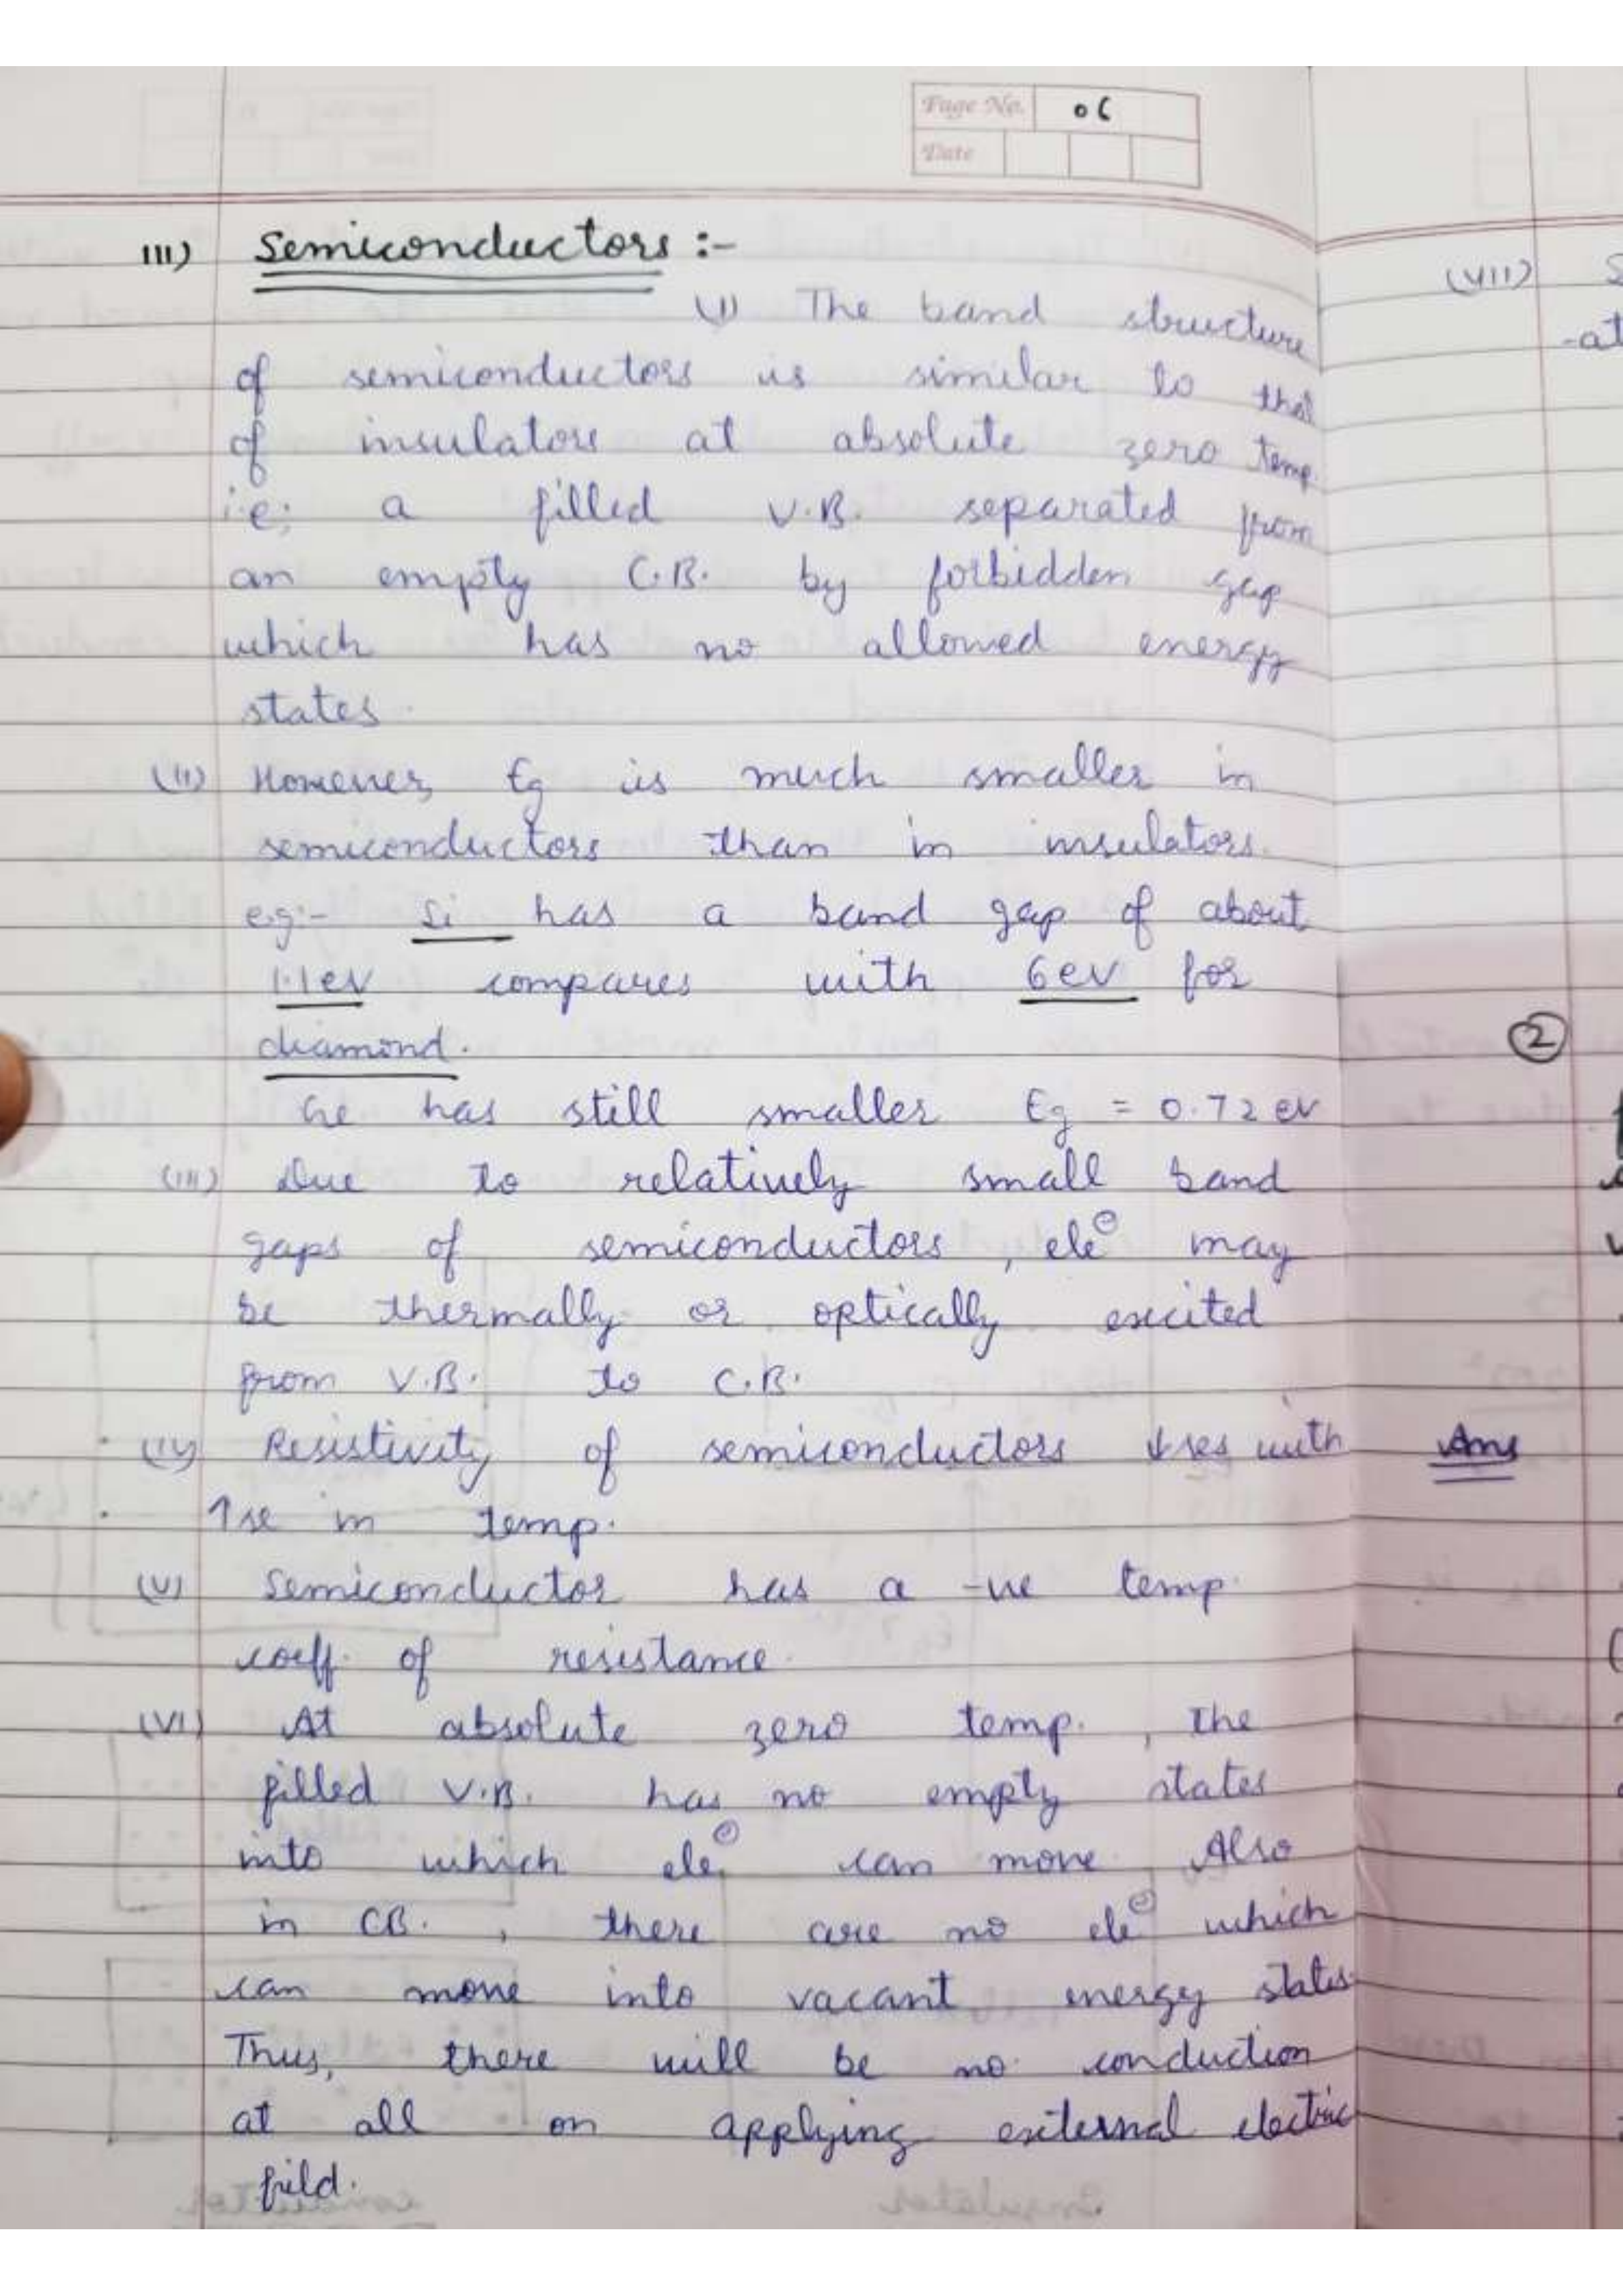 Page No. 06
Date
III) Semiconductors :-
(I) The band structure
of semiconductors is similar to that
of insulators at absolute zero temp.
i.e; a filled V.B. separated from
an empty C.B. by forbidden gap
which has no allowed energy
states.
(II) However, Eg is much smaller in
semiconductors than in insulators.
e.g:- Si has a band gap of about
1.1 eV compares with 6 eV for
diamond.
Ge has still smaller Eg = 0.72 eV
(III) Due to relatively small band
gaps of semiconductors, ele⊖ may
be thermally or optically excited
from V.B. to C.B.
(IV) Resistivity of semiconductors ↓ses with
↑se in temp.
(V) Semiconductor has a -ve temp.
coeff. of resistance.
(VI) At absolute zero temp., the
filled V.B. has no empty states
into which ele⊖ can move. Also
in CB., there are no ele⊖ which
can move into vacant energy states.
Thus, there will be no conduction
at all on applying external electric
field.
(VII) S
-at
2
Ans